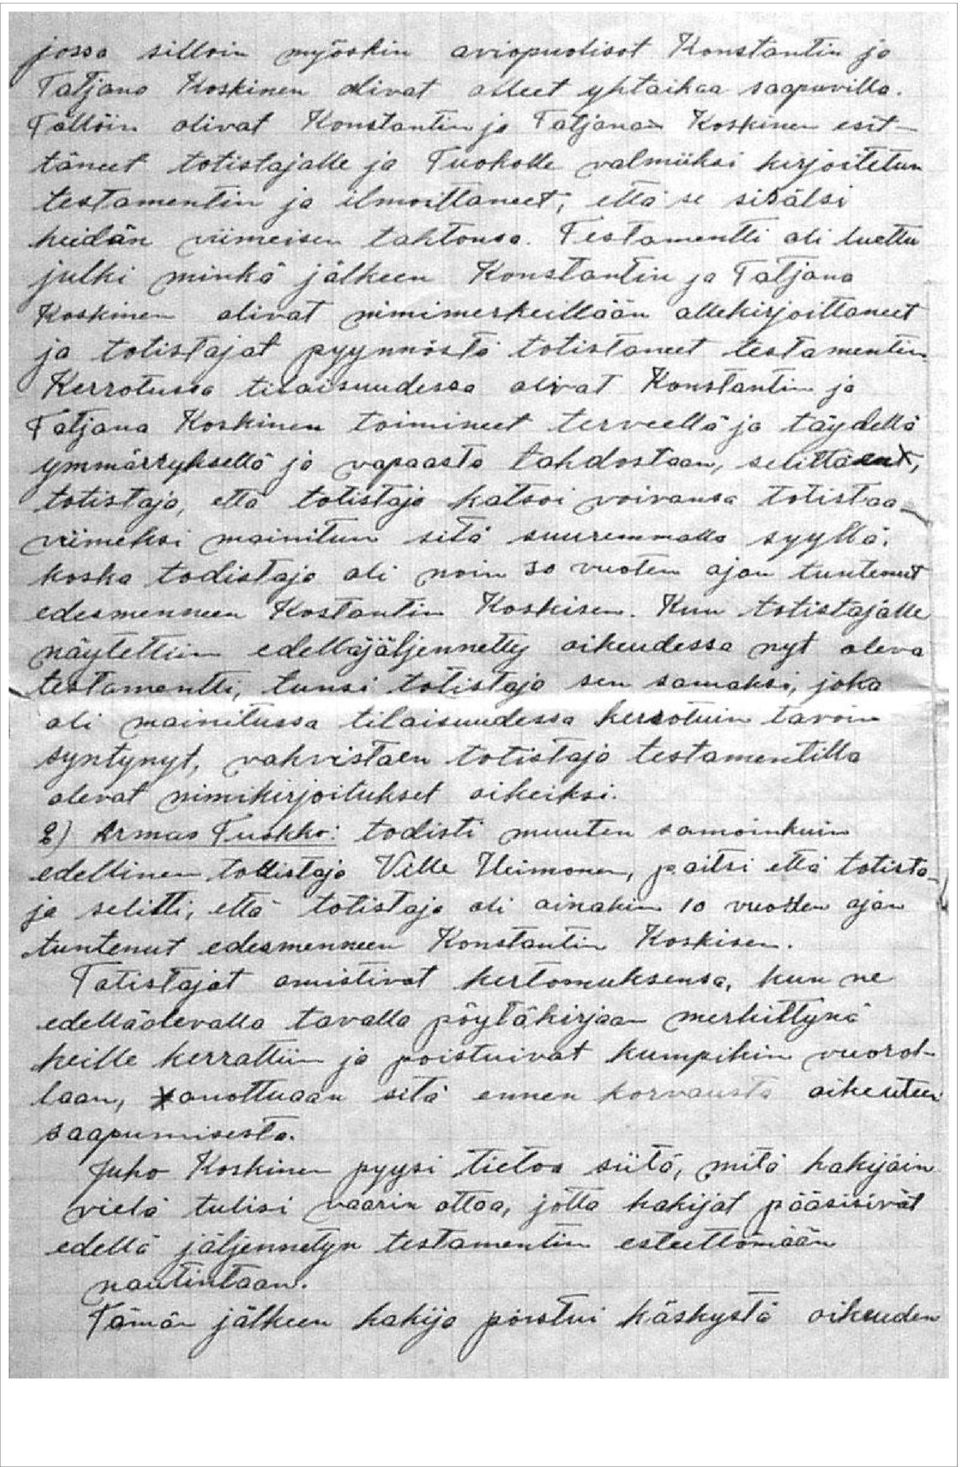 jossa silloin myöskin aviopuolisot Konstantin ja
Tatjana Koskinen olivat olleet yhtaikaa saapuvilla.
Tällöin olivat Konstantin ja Tatjana Koskinen esit-
täneet totistajalle ja Tuokolle valmiiksi kirjoitetun
testamentin ja ilmoittaneet, että se sisälsi
heidän viimeisen tahtonsa. Testamentti oli luettu
julki minkä jälkeen Konstantin ja Tatjana
Koskinen olivat nimimerkeillään allekirjoittaneet
ja totistajat pyynnöstä totistaneet testamentin.
Kerrotussa tilaisuudessa olivat Konstantin ja
Tatjana Koskinen toimineet terveellä ja täydellä
ymmärryksellä ja vapaasta tahdostaan, selittäen,
totistaja, että totistaja katsoi voivansa totistaa
viimeksi mainitun sitä suuremmalla syyllä,
koska todistaja oli noin 30 vuoten ajan tuntenut
edesmenneen Kostantin Koskisen. Kun totistajalle
näytettiin edelläjäljennetty oikeudessa nyt oleva
testamentti, tunsi totistaja sen samaksi, joka
oli mainitussa tilaisuudessa kerrotuin tavoin
syntynyt, vahvistaen totistaja testamentilla
olevat nimikirjoitukset oikeiksi.
2) Armas Tuokko: todisti muuten samoinkuin
edellinen totistaja Ville Heimonen, paitsi että totista-
ja selitti, että totistaja oli ainakin 10 vuotten ajan
tuntenut edesmenneen Konstantin Koskisen.
Totistajat omistivat kertomuksensa, kun ne
edelläolevalla tavalla pöytäkirjaan merkittynä
heille kerrattiin ja poistuivat kumpikin vuorol-
laan, anottuaan sitä ennen korvausta oikeuteen
saapumisesta.
Juho Koskinen pyysi tietoa siitä, mitä hakijain
vielä tulisi vaarin ottaa, jotta hakijat pääsisivät
edellä jäljennetyn testamentin esteettömään
nautintaan.
Tämän jälkeen hakija poistui käskystä oikeuden